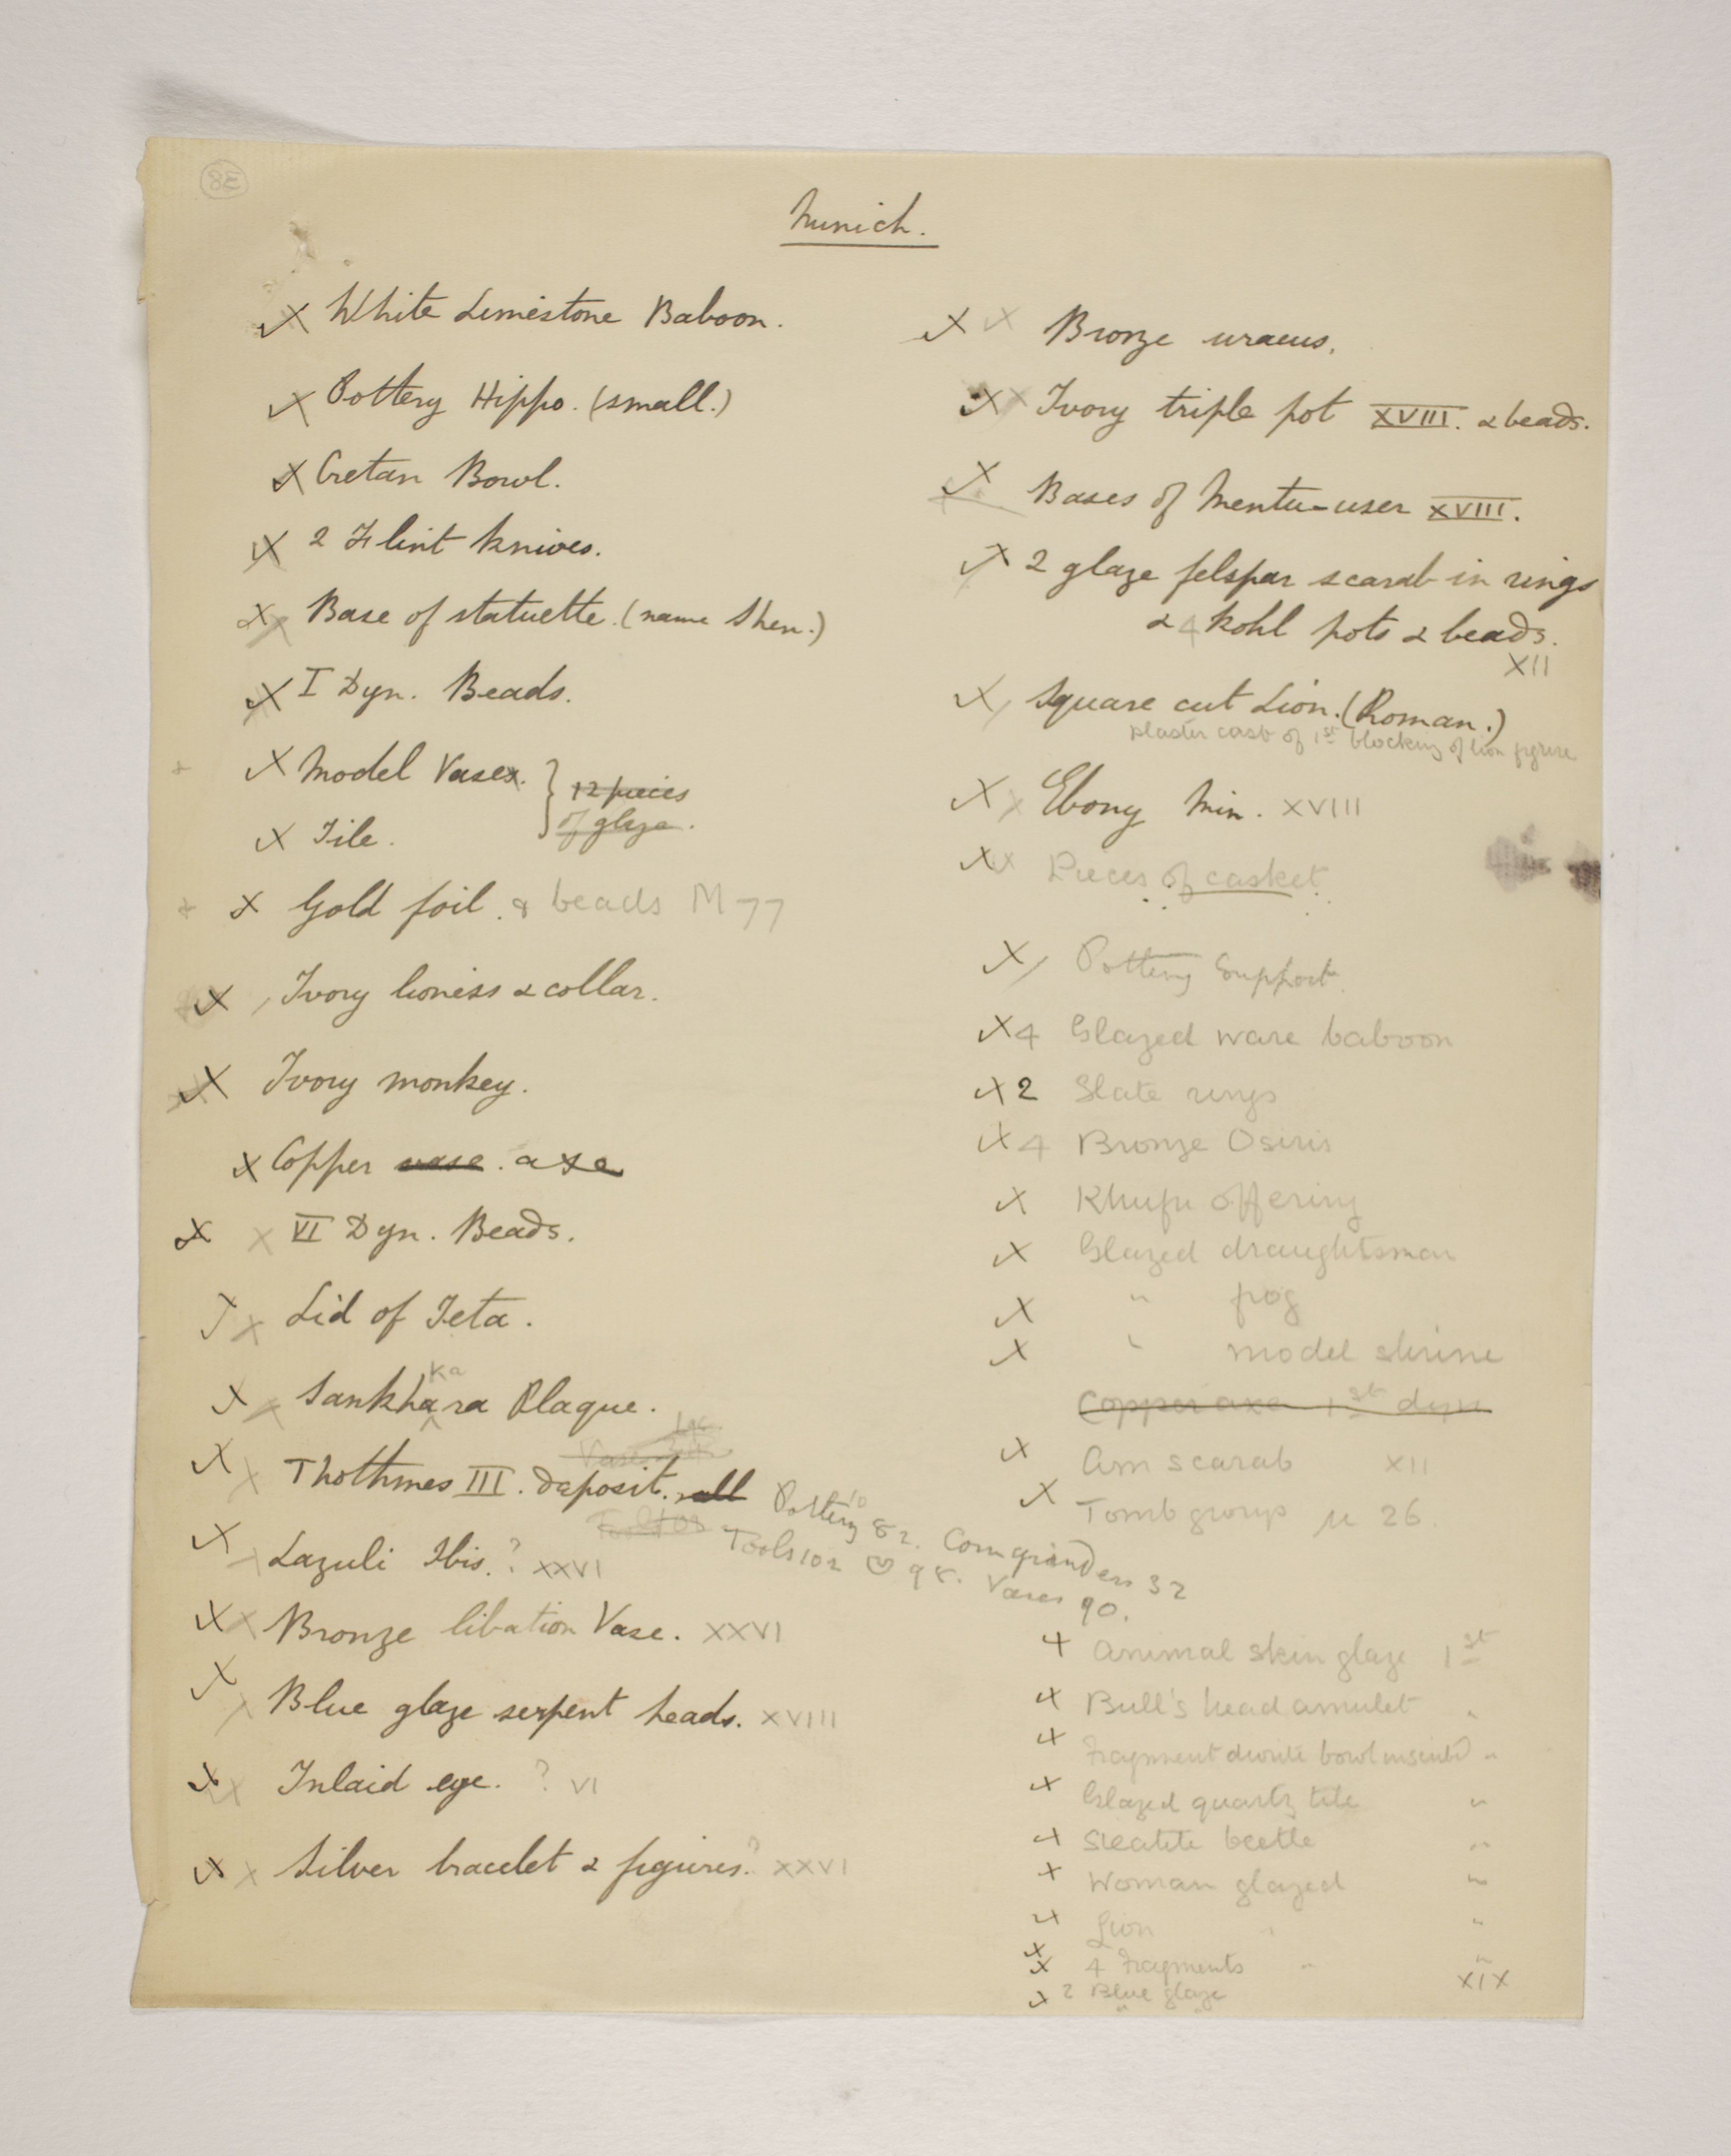 8E
Munich.
White Limestone Baboon.
Pottery Hippo. (small.)
Cretan Bowl.
2 Flint knives.
Base of statuette. (name Shen.)
I Dyn. Beads.
Model Vases. } 12 pieces
Tile. of glaze.
Gold foil. & beads M 77
Ivory lioness & collar.
Ivory monkey.
Copper vase. axe
VI Dyn. Beads.
Lid of Teta.
Ka
Sankhara Plaque.
Thothmes III. deposit. all Pottery 10 82. Corn grinders 32
Tools 102 98. Vases 90.
Lazuli Ibis. ? XXVI
Bronze libation Vase. XXVI
Blue glaze serpent heads. XVIII
Inlaid eye. ? VI
Silver bracelet & figures. ? XXVI
Bronze uraeus.
Ivory triple pot XVIII. & beads.
Bases of Mentu-user XVIII.
2 glaze felspar scarab in rings
& 4 kohl pots & beads.
XII
Square cut Lion. (Roman.)
plaster cast of 1st blocking of lion figure
Ebony Min. XVIII
Pieces of casket
Pottery Support
4 Glazed ware baboon
2 Slate rings
4 Bronze Osiris
Khufu offering
Glazed draughtsman
" frog
" model shrine
Copper axe 1st dyn
Am scarab XII
Tomb group M 26.
Animal skin glaze 1st
Bull's head amulet "
Fragment diorite bowl "
Glazed quartz tile "
Steatite beetle "
Woman glazed "
Lion " "
4 Fragments " "
2 Blue glaze XIX